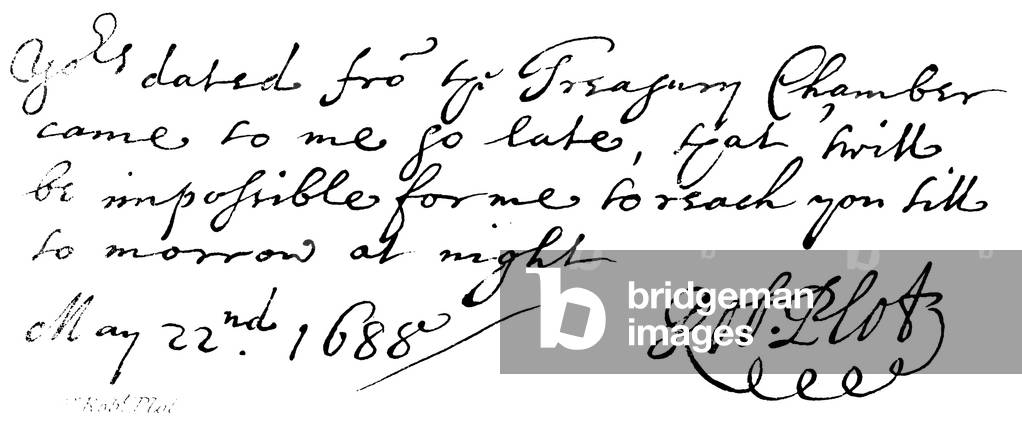 Yo^rs dated frō y^e Treasury Chamber
came to me so late, that 'twill
be impossible for me to reach you till
to morrow at night
May 22^nd. 1688
Rob. Plot
Rob^t. Plot
b
bridgeman
images